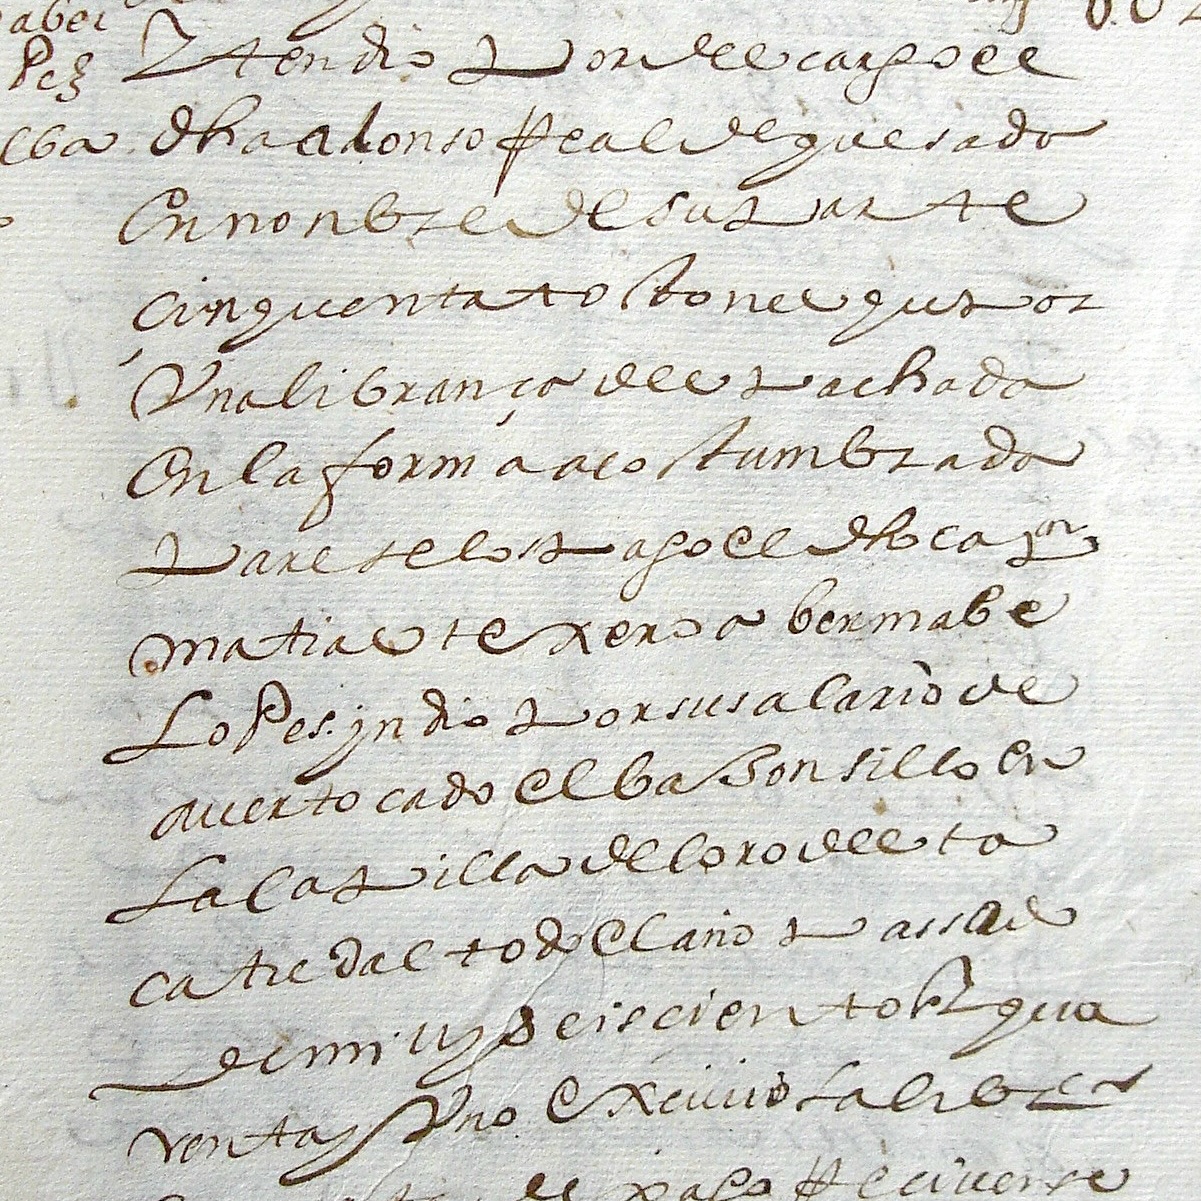 Yten dio por de cargo el
dho alonso Real de quesada
En nonbre de su parte
cinquenta tostones que por
Una librança de es pachada
En la forma acostumbrada
Pareselos pago el dho ca pan
matias texero a bernabe
Lopes. yndio por su salario de
auer tocado el baxonsillo en
La capilla del coro de esta
catredal todo el año passado
de mil y seiscientos y qua
renta y Uno Exciuio la libra